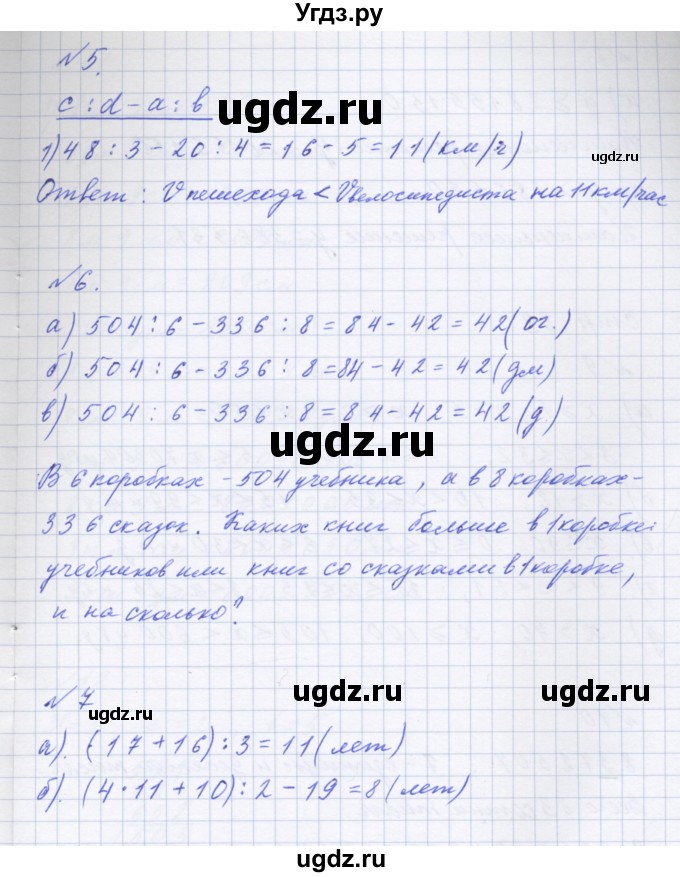 Угдз.ру
№5.
c : d - a : b
ugdz.ru
1) 48 : 3 - 20 : 4 = 16 - 5 = 11 (км/ч)
ugdz.ru
Ответ: Vпешехода < Vвелосипедиста на 11 км/час
№6.
ugdz.ru
ugdz.ru
а) 504 : 6 - 336 : 8 = 84 - 42 = 42 (ог.)
б) 504 : 6 - 336 : 8 = 84 - 42 = 42 (дм)
в) 504 : 6 - 336 : 8 = 84 - 42 = 42 (д)
ugdz.ru
В 6 коробках - 504 учебника, а в 8 коробках -
336 сказок. Каких книг больше в 1 коробке:
ugdz.ru
учебников или книг со сказками в 1 коробке,
и на сколько?
№7
ugdz.ru
ugdz.ru
ugdz.ru
а). (17 + 16) : 3 = 11 (лет)
б). (4 · 11 + 10) : 2 - 19 = 8 (лет)
ugdz.ru